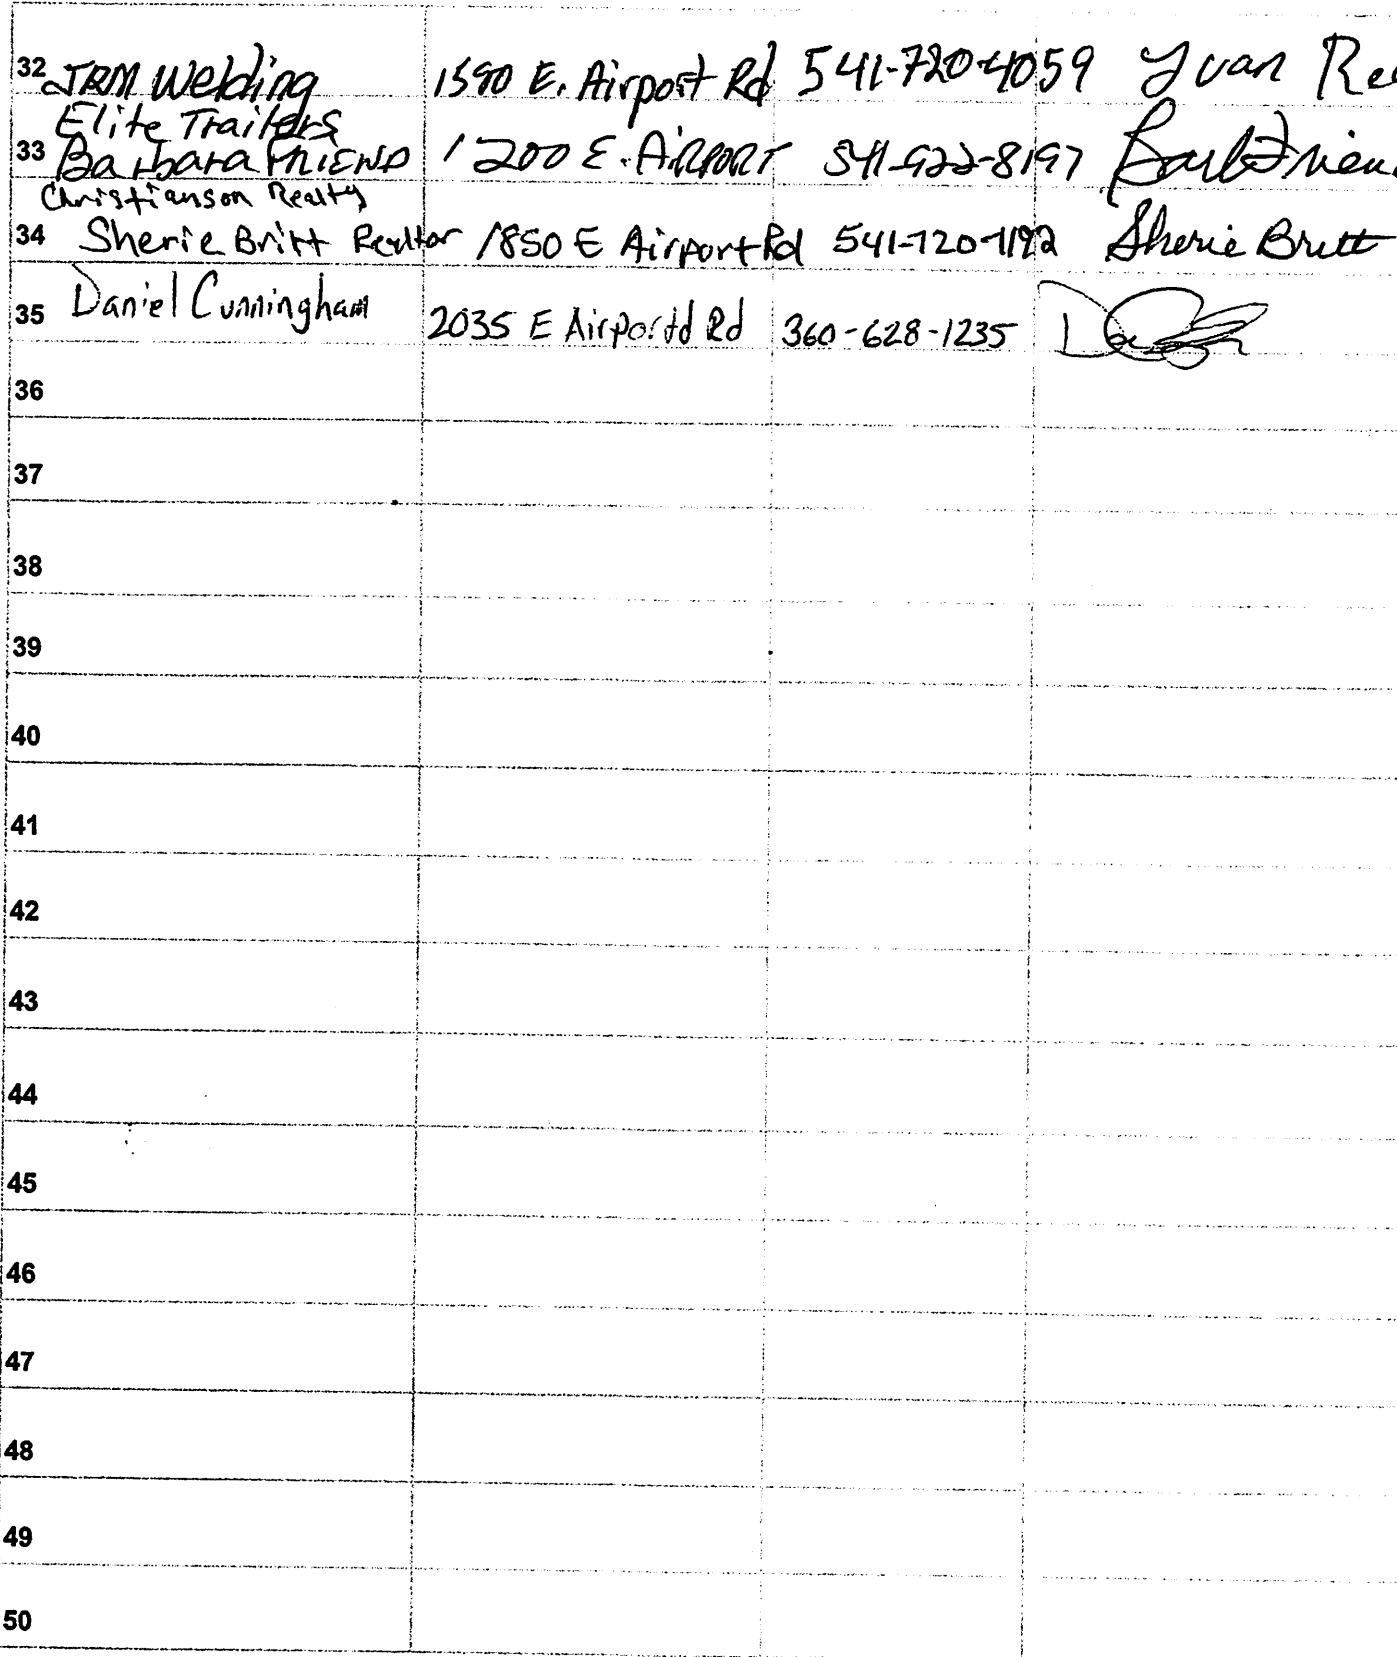 32 JRM Welding 1590 E. Airport Rd 541-720-4059 Yvan
Elite Trailers
33 Barbara FRIEND 1200 E. AIRPORT 541-922-8197 Barb Frien
Christianson Realty
34 Sherie Britt Realtor 1850 E Airport Rd 541-720-1192 Sherie Britt
35 Daniel Cunningham 2035 E Airportd Rd 360-628-1235
36
37
38
39
40
41
42
43
44
45
46
47
48
49
50